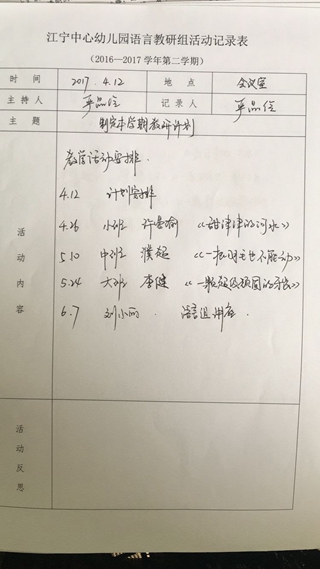 江宁中心幼儿园语言教研组活动记录表
（2016—2017 学年第二学期）
时 间 2017. 4.12 地 点 会议室
主 持 人 记 录 人
主 题 制定本学期教研计划
活动内容
教学活动安排.
4.12 计划安排
4.26 小班 《甜津津的河水》
5.10 中班 濮超 《一根羽毛也不能动》
5.24 大班 李健 《一颗超级顽固的牙》
6.7 刘小丽. 语言组讲座.
活动反思